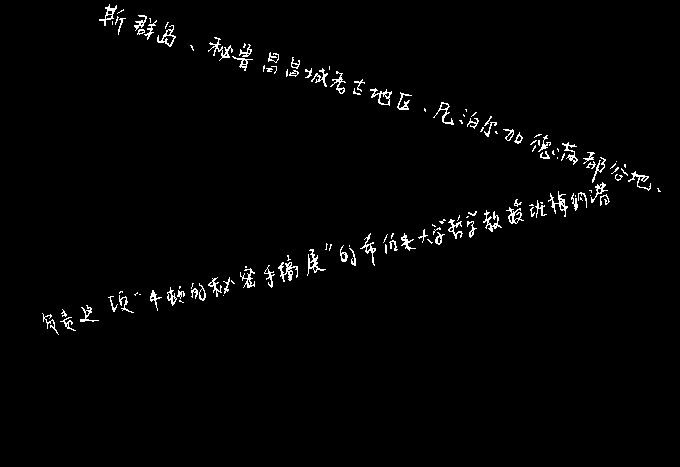 斯群岛、秘鲁昌昌城考古地区、尼泊尔加德满都谷地、
负责这项“牛顿的秘密手稿展”的希伯来大学哲学教授班掉纳潜